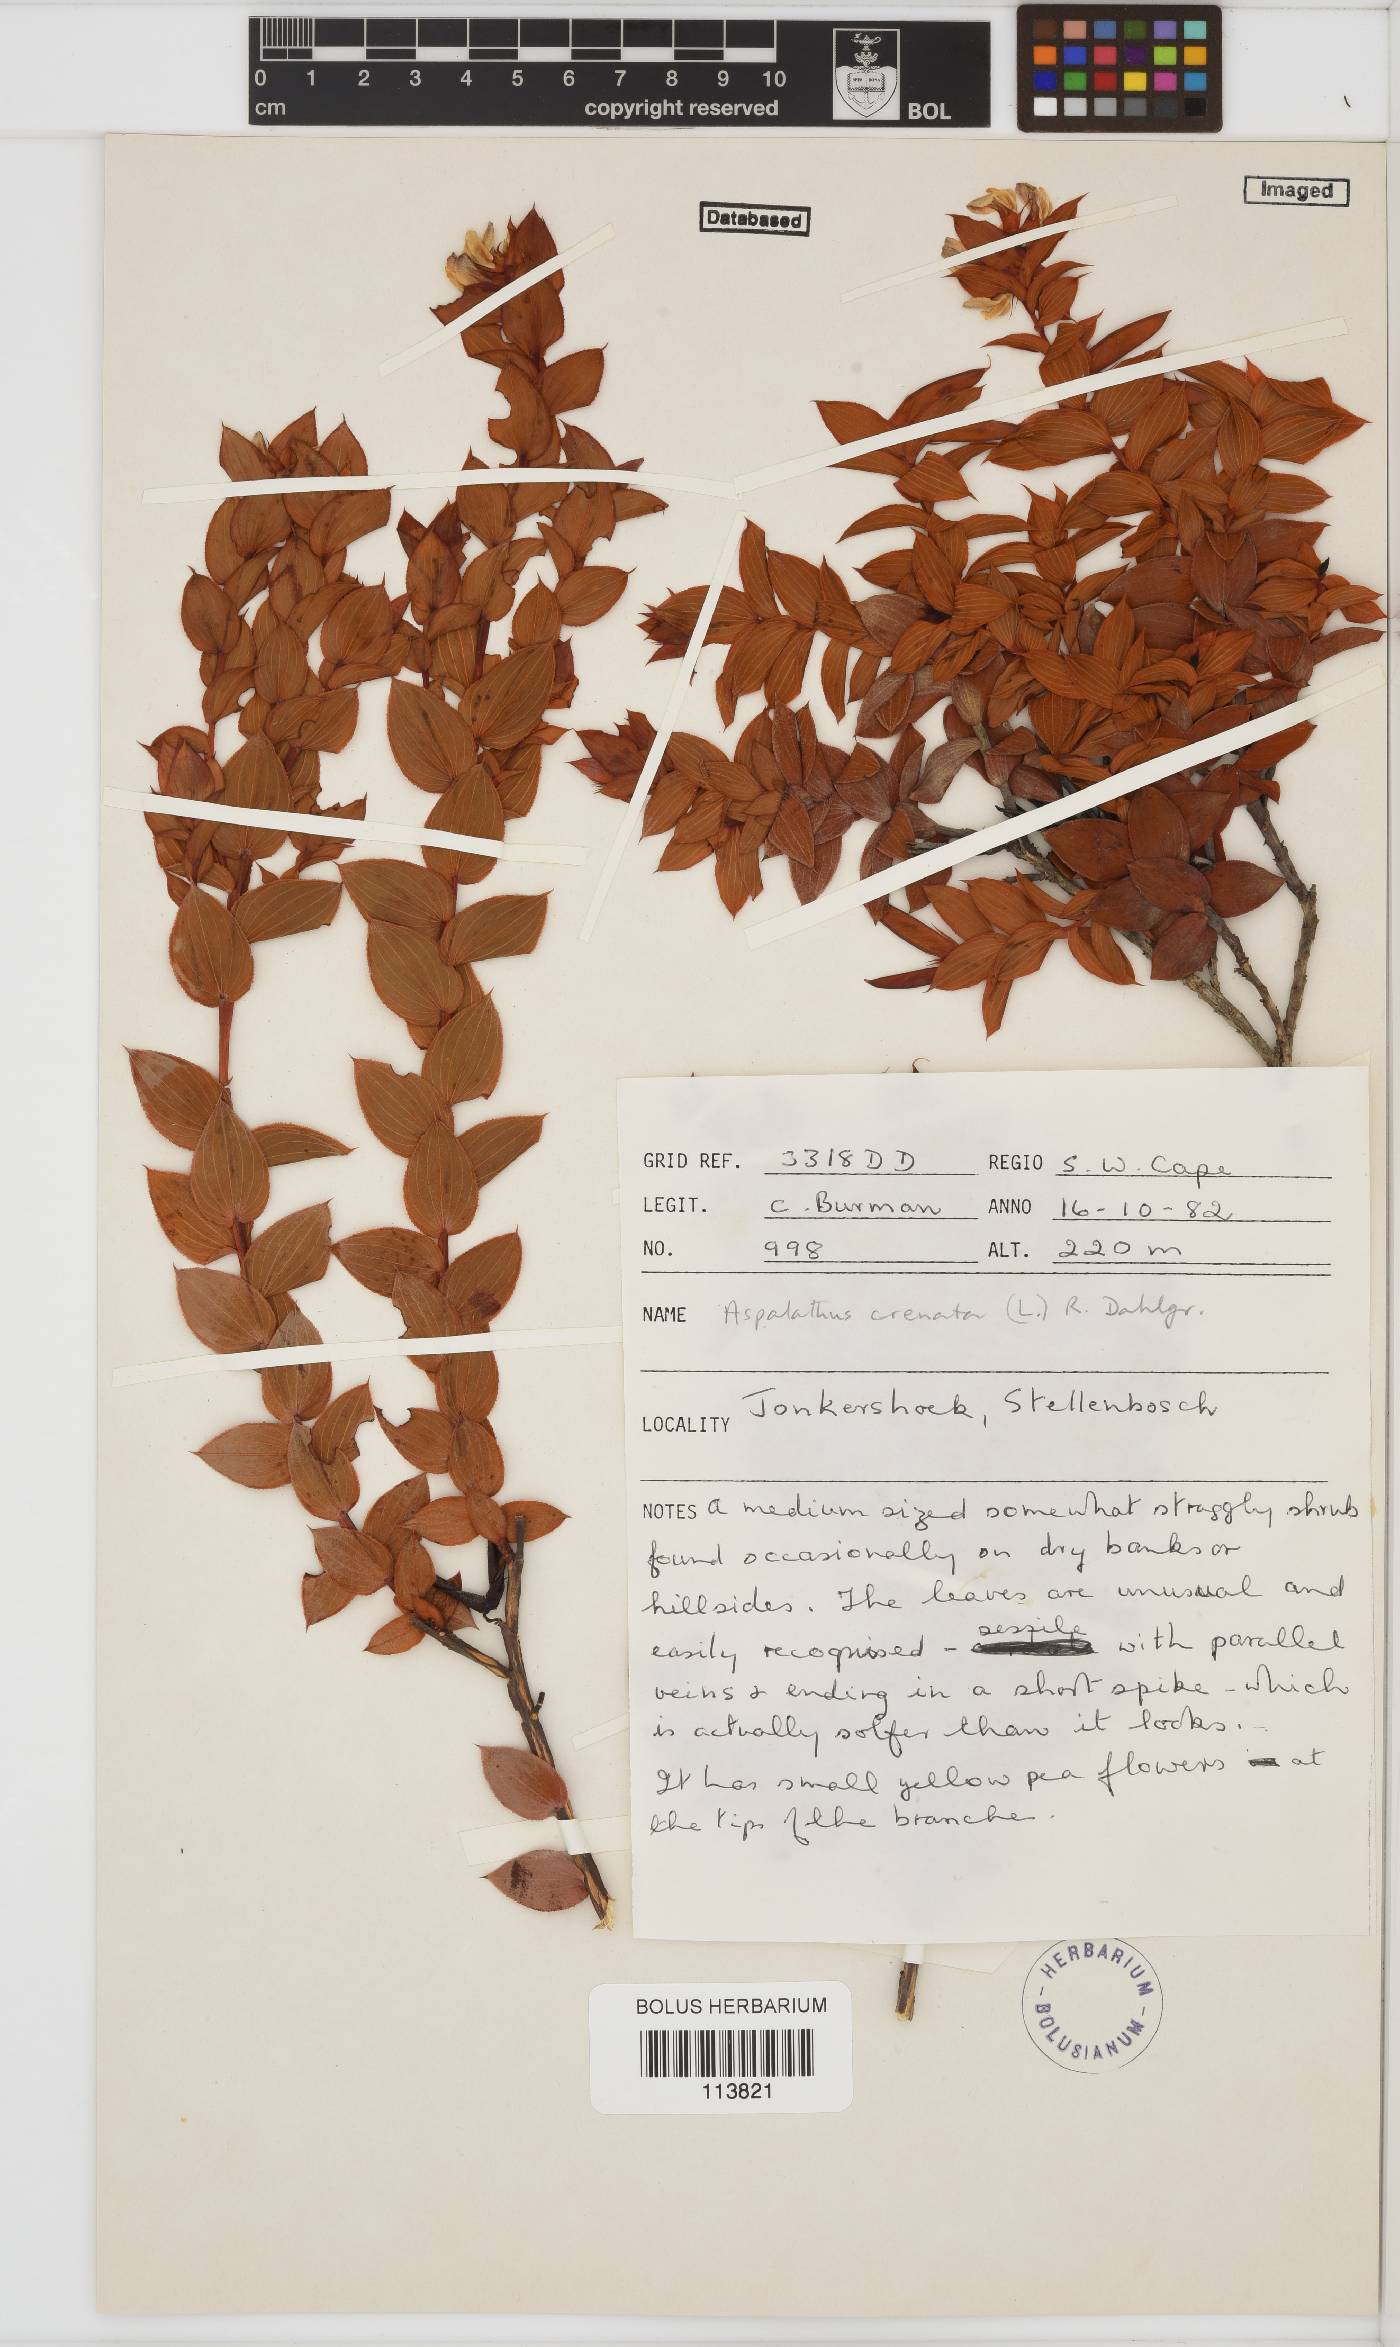 0 1 2 3 4 5 6 7 8 9 10
cm copyright reserved BOL
Databased
Imaged
GRID REF. 3318DD REGIO S. W. Cape
LEGIT. C. Burman ANNO 16-10-82
NO. 998 ALT. 220 m
NAME Aspalathus crenata (L.) R. Dahlgr.
LOCALITY Jonkershoek, Stellenbosch
NOTES A medium sized somewhat straggly shrub
found occasionally on dry banks or
hillsides. The leaves are unusual and
easily recognised - sessile with parallel
veins & ending in a short spike - which
is actually solfer than it looks. -
It has small yellow pea flowers at
the tips of the branches.
HERBARIUM
BOLUSIANUM
BOLUS HERBARIUM
113821